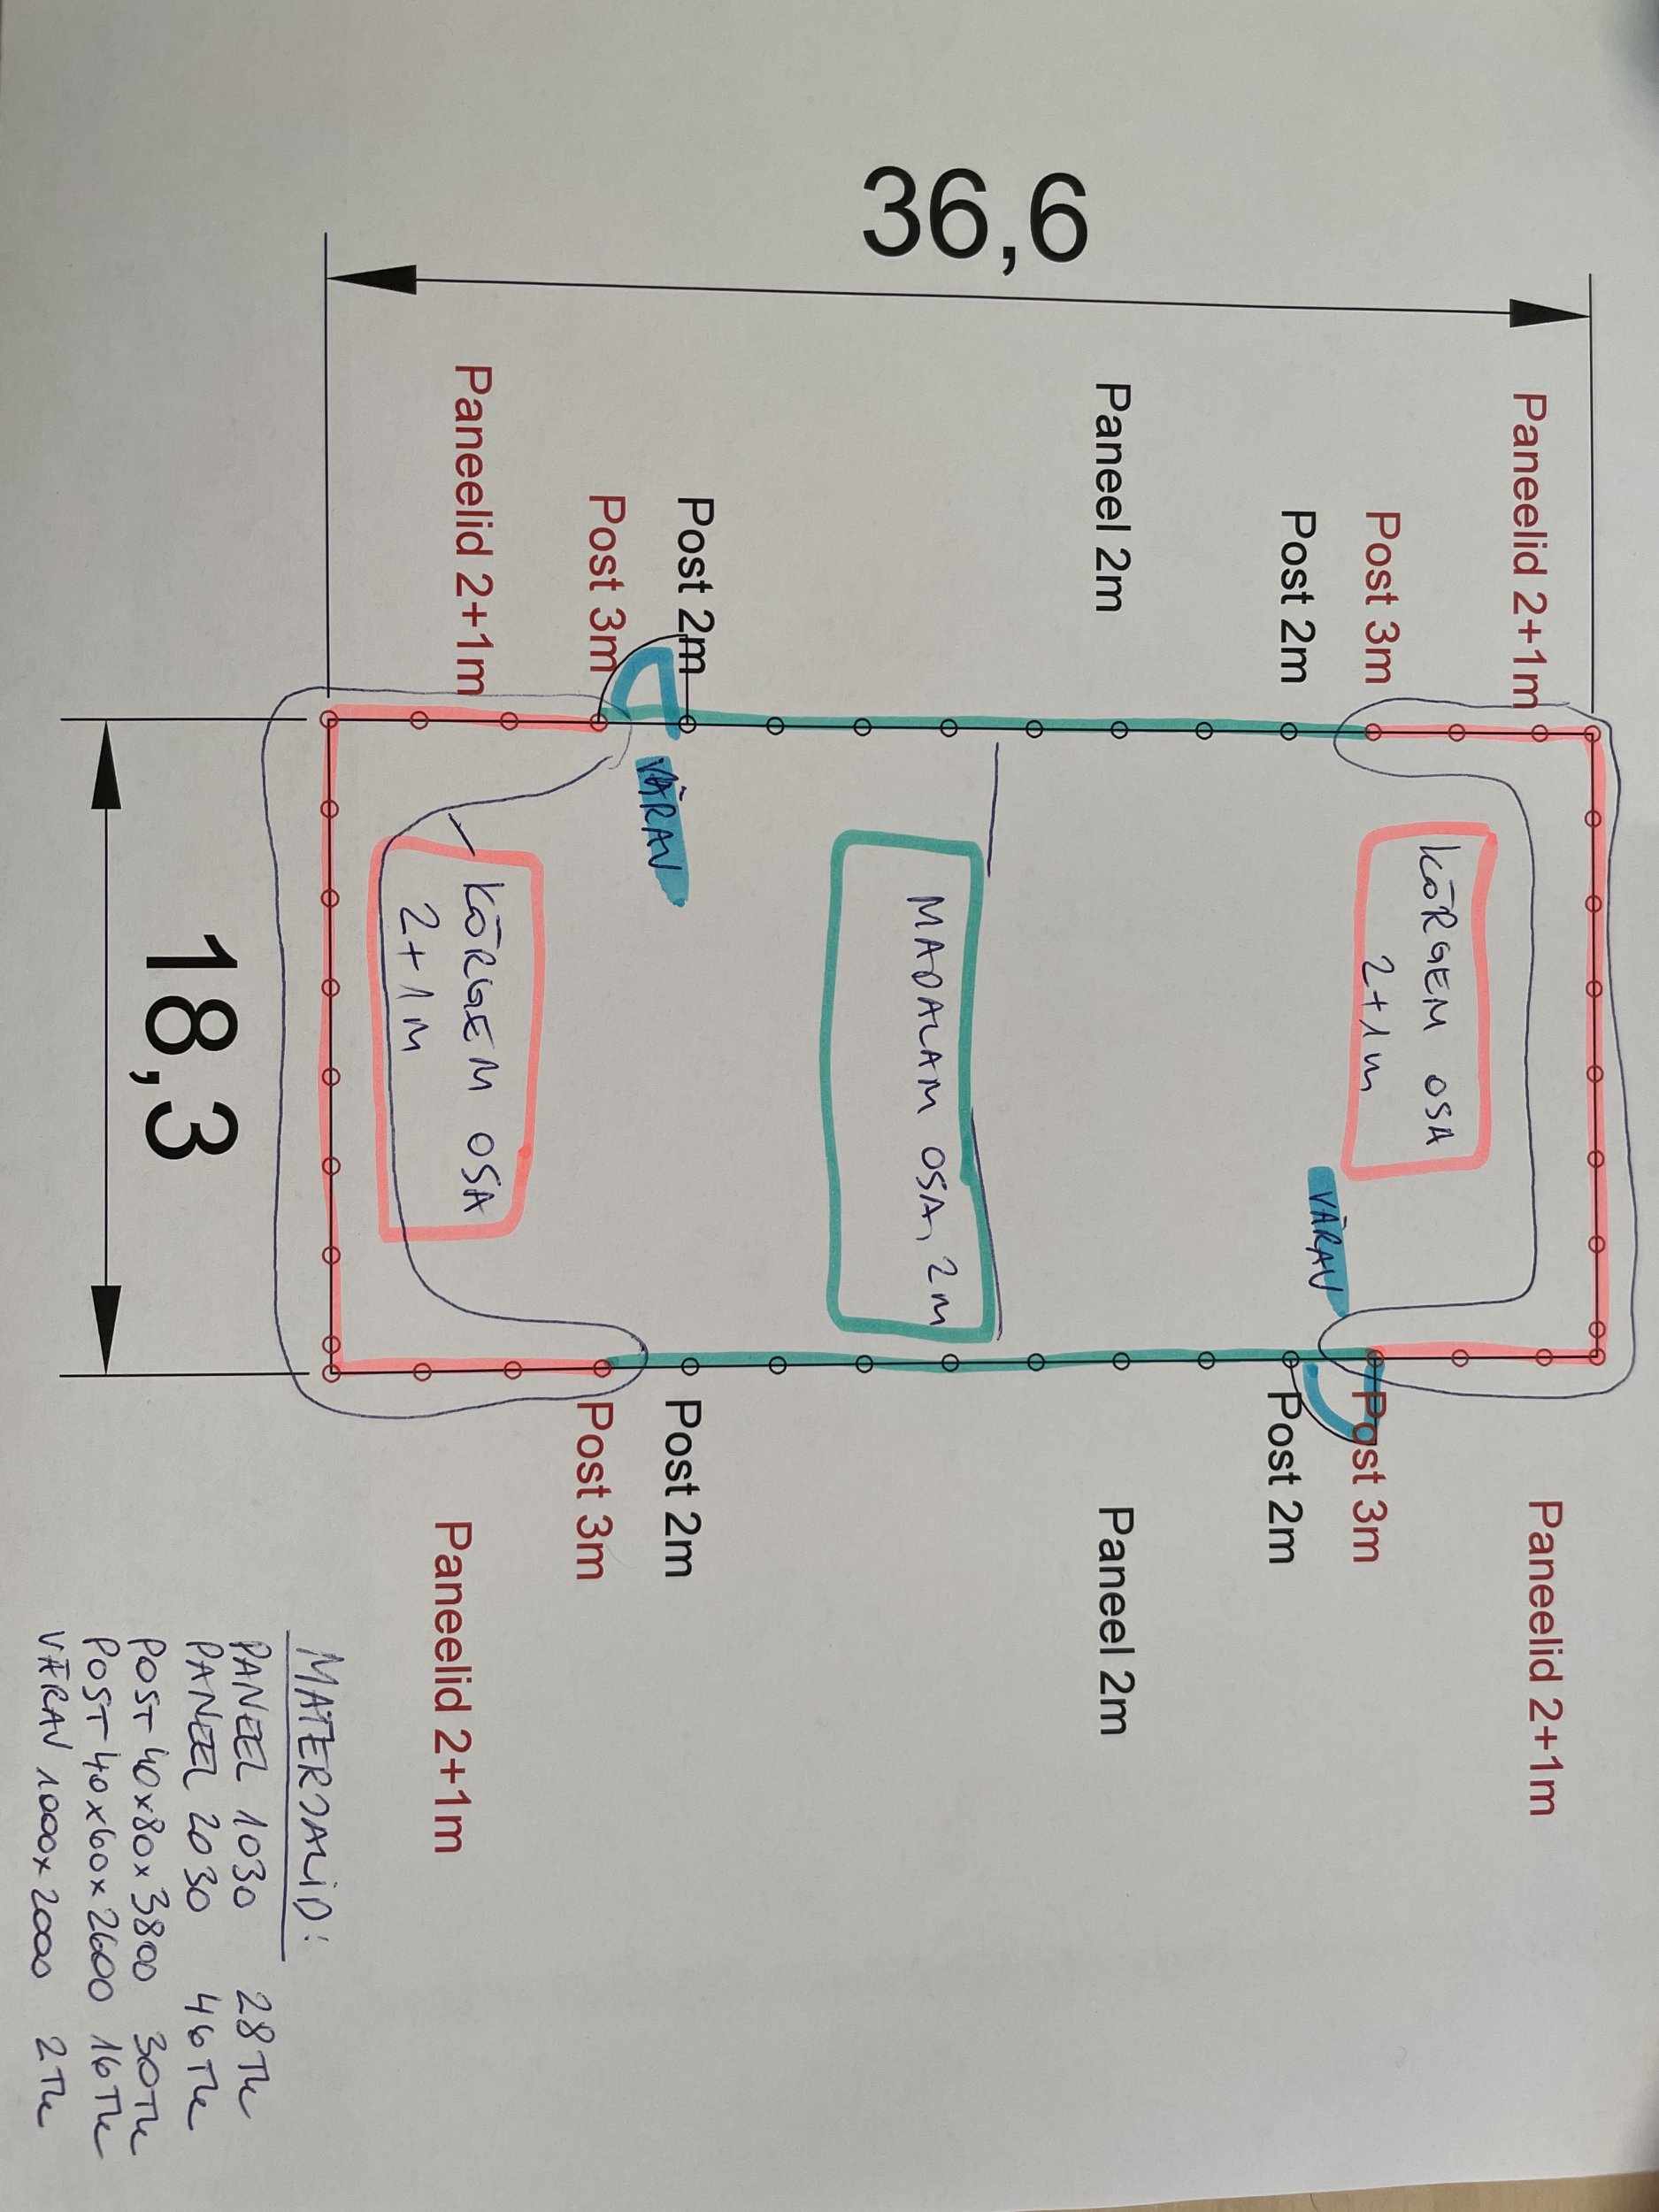 36,6
Paneelid 2+1m
Post 3m
Post 2m
Paneel 2m
Post 2m
Post 3m
Paneelid 2+1m
KÕRGEM OSA
2+1m
MADALAM OSA, 2m
VÄRAV
KÕRGEM OSA
2+1M
VÄRAV
18,3
Paneelid 2+1m
Post 3m
Post 2m
Paneel 2m
Post 2m
Post 3m
Paneelid 2+1m
MATERJALID:
PANEEL 1030 28 TK
PANEEL 2030 46 TK
POST 40x80x3800 30TK
POST 40x60x2600 16TK
VÄRAV 1000x2000 2TK